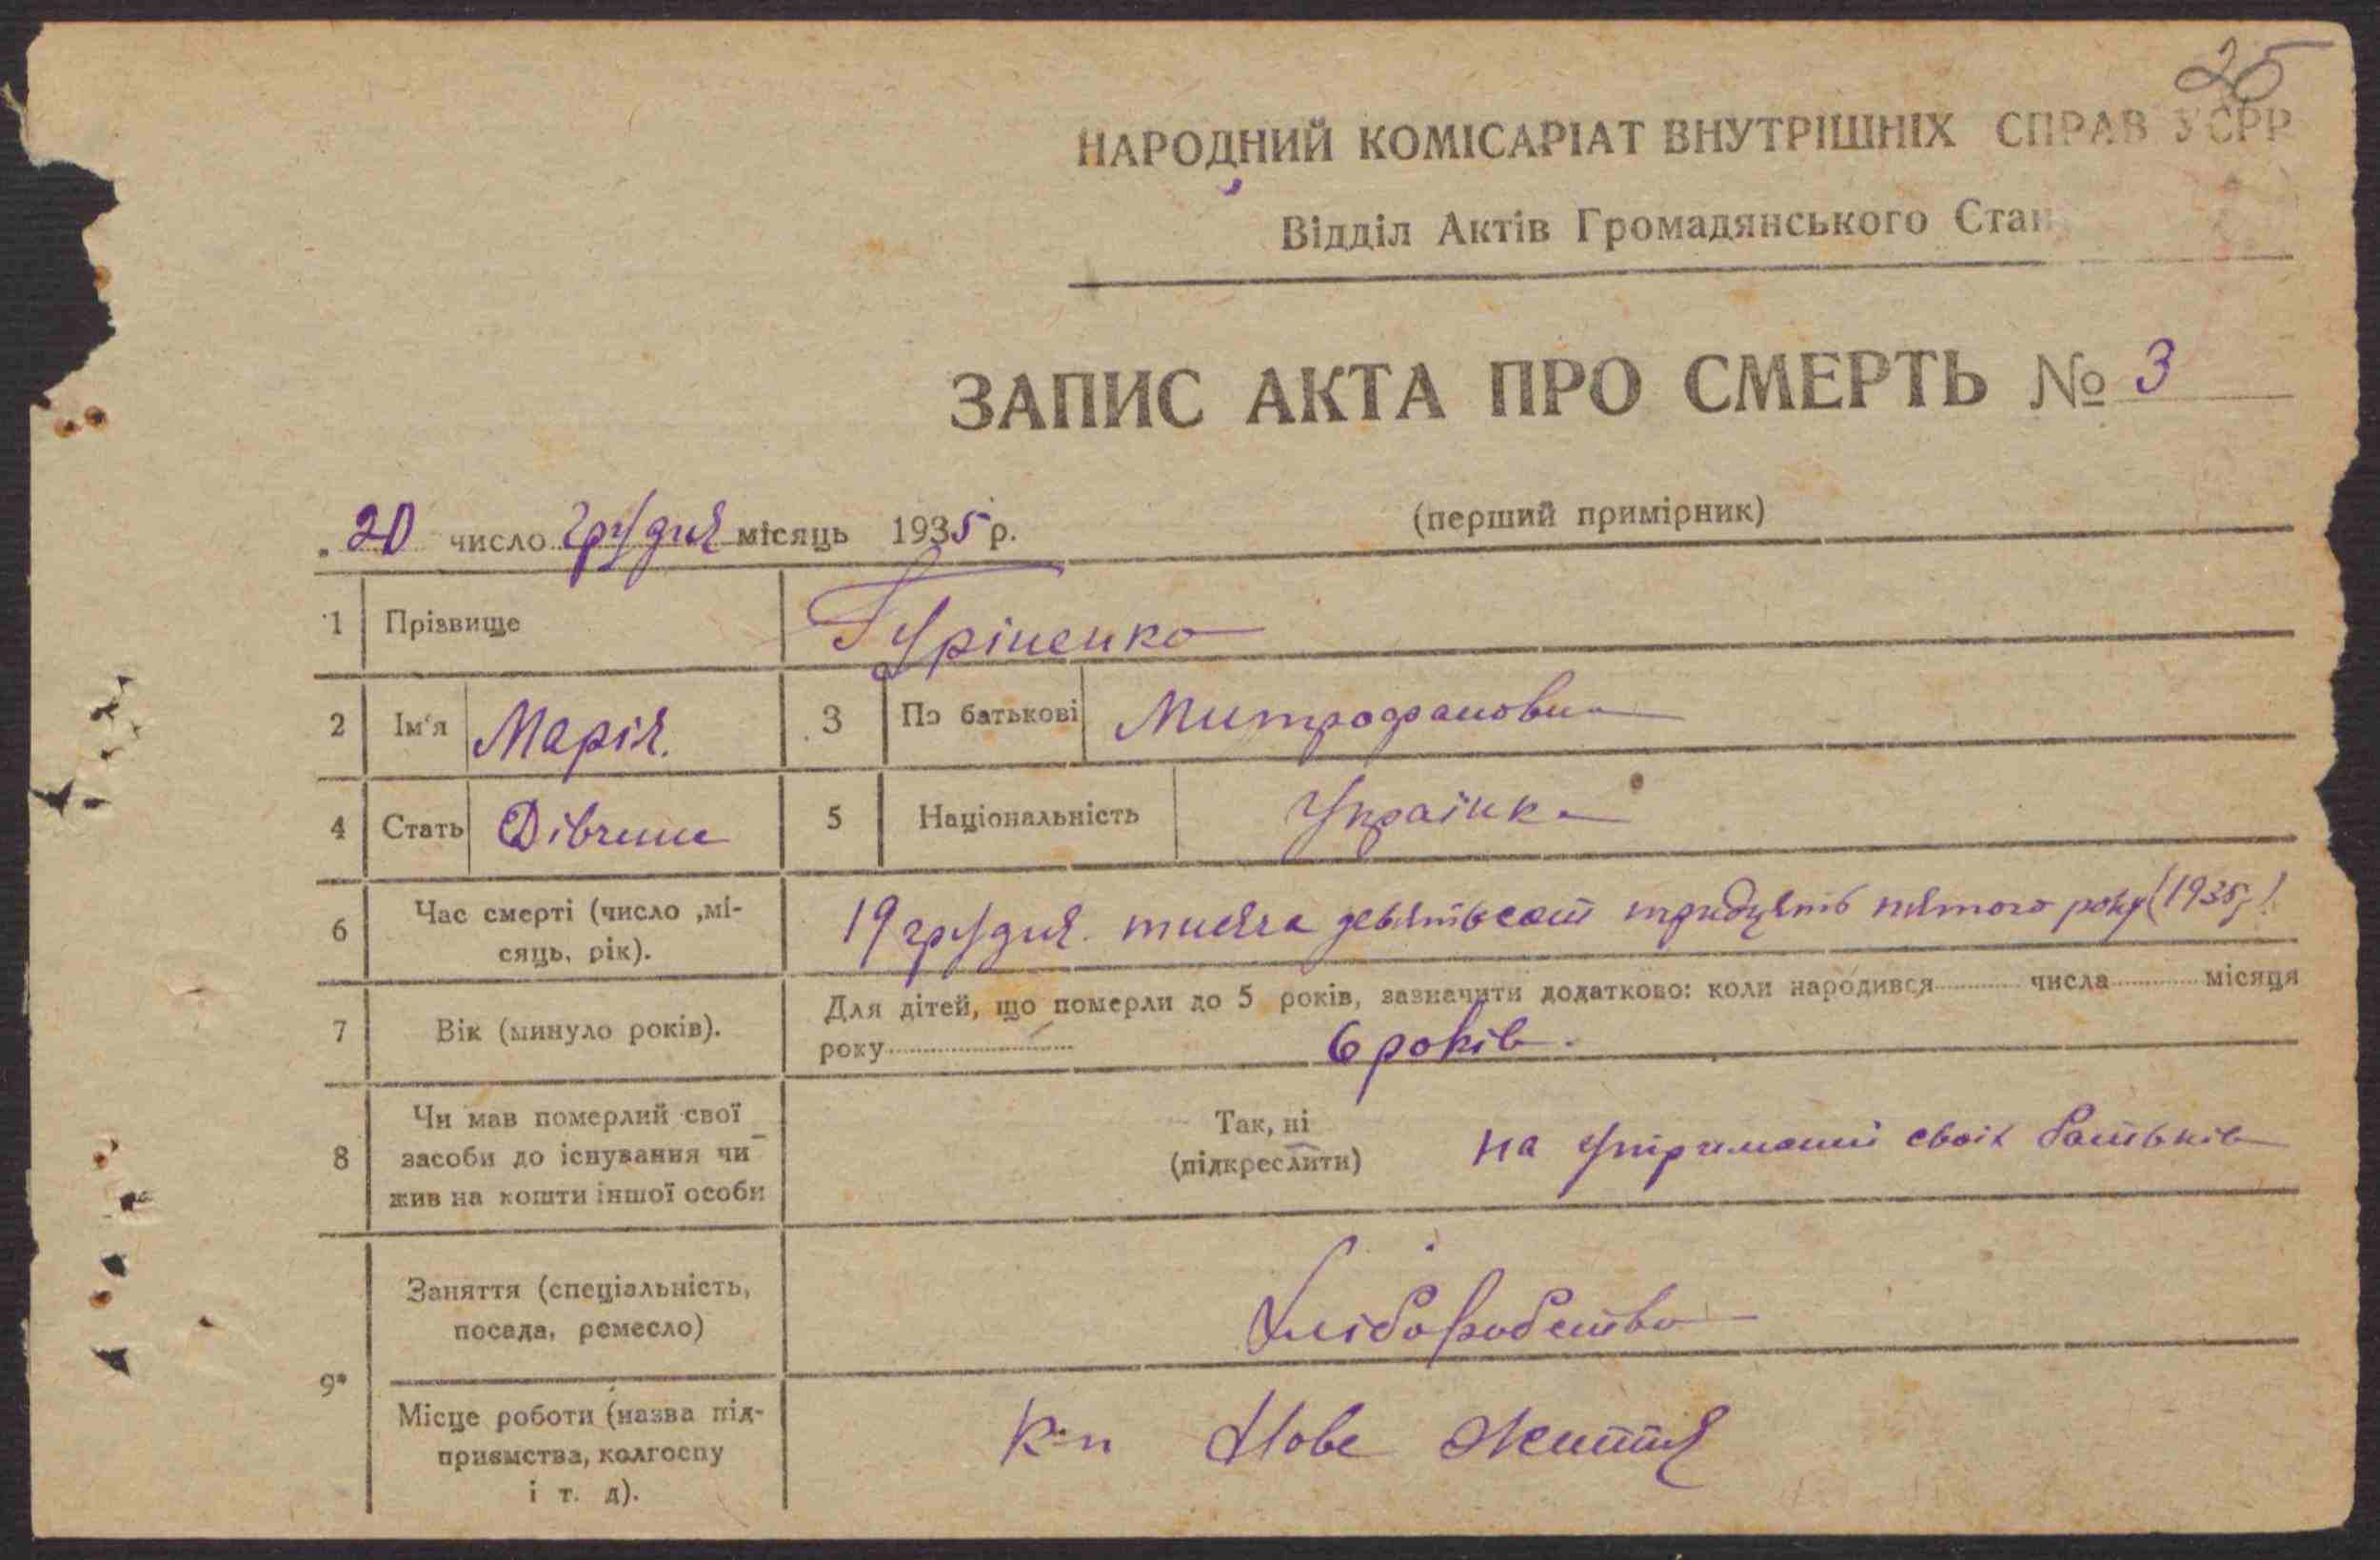 25
НАРОДНИЙ КОМІСАРІАТ ВНУТРІШНІХ СПРАВ УСРР
Відділ Актів Громадянського Стан
ЗАПИС АКТА ПРО СМЕРТЬ № 3
(перший примірник)
20 число грудня місяць 1935 р.
1 Прізвище Гуріненко
2 Ім'я Марія. 3 По батькові Митрофанович
4 Стать Дівчина 5 Національність Українка
6 Час смерті (число ,мі-
сяць, рік).
19 грудня. тисяча девятьсот тридцять пятого року (1935р)
7 Вік (минуло років).
Для дітей, що померли до 5 років, зазначити додатково: коли народився числа місяця
року 6 років.
8 Чи мав померлий свої
засоби до існування чи
жив на кошти іншої особи
Так, ні
(підкреслити)
на утриманні своїх батьків
9* Заняття (спеціальність,
посада, ремесло)
Хліборобство
Місце роботи (назва під-
приємства, колгоспу
і т. д).
к-п Нове Життя